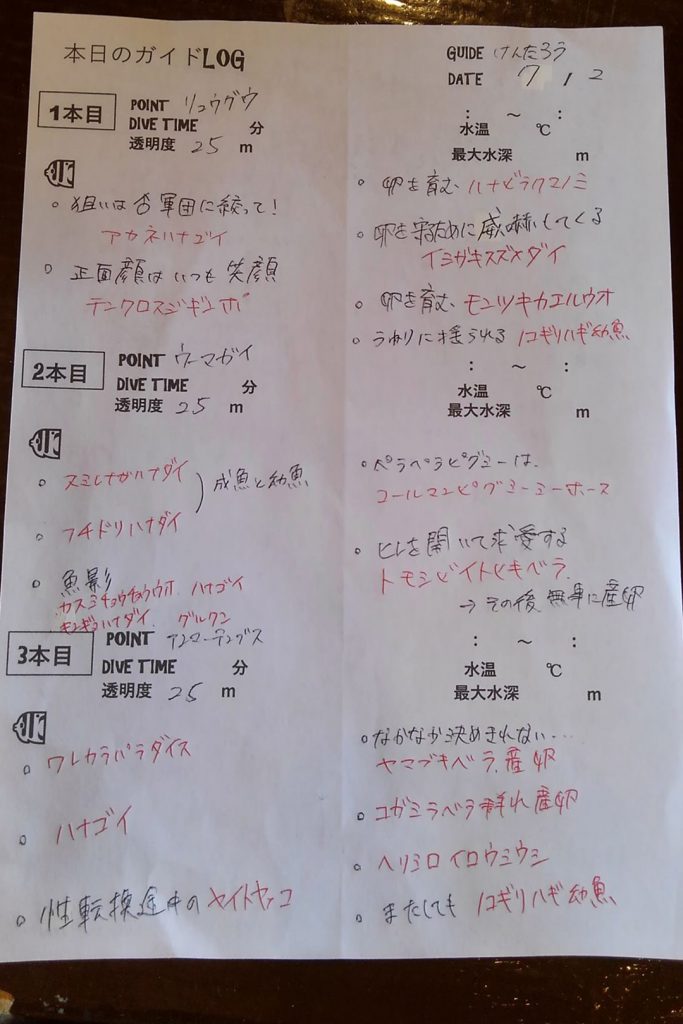 本日のガイドLOG
GUIDE けんたろう
DATE 7 / 2
1本目
POINT リュウグウ
DIVE TIME 分
透明度 25 m
: ～ :
水温 ℃
最大水深 m
狙いは 軍団に絞って!
アカネハナゴイ
正面顔は いつも 笑顔
テンクロスジギンポ
卵を育む ハナビラクマノミ
卵を守るために威嚇してくる
イシガキスズメダイ
卵を育む モンツキカエルウオ
うねりに揺られる ノコギリハギ幼魚
2本目
POINT ウーマガイ
DIVE TIME 分
透明度 25 m
: ～ :
水温 ℃
最大水深 m
スミレナガハナダイ
フチドリハナダイ
成魚と幼魚
魚影
カスミチョウチョウウオ ハナゴイ
キンギョハナダイ グルクン
ペラペラピグミーは、
コールマンピグミーシーホース
ヒレを開いて求愛する
トモシビイトヒキベラ
→ その後、無事に産卵
3本目
POINT アンマーテングス
DIVE TIME 分
透明度 25 m
: ～ :
水温 ℃
最大水深 m
ワレカラパラダイス
ハナゴイ
性転換途中の ヤイトヤッコ
なかなか決めきれない...
ヤマブキベラ 産卵
コガシラベラ群れ産卵
ヘリシロイロウミウシ
またしても ノコギリハギ幼魚